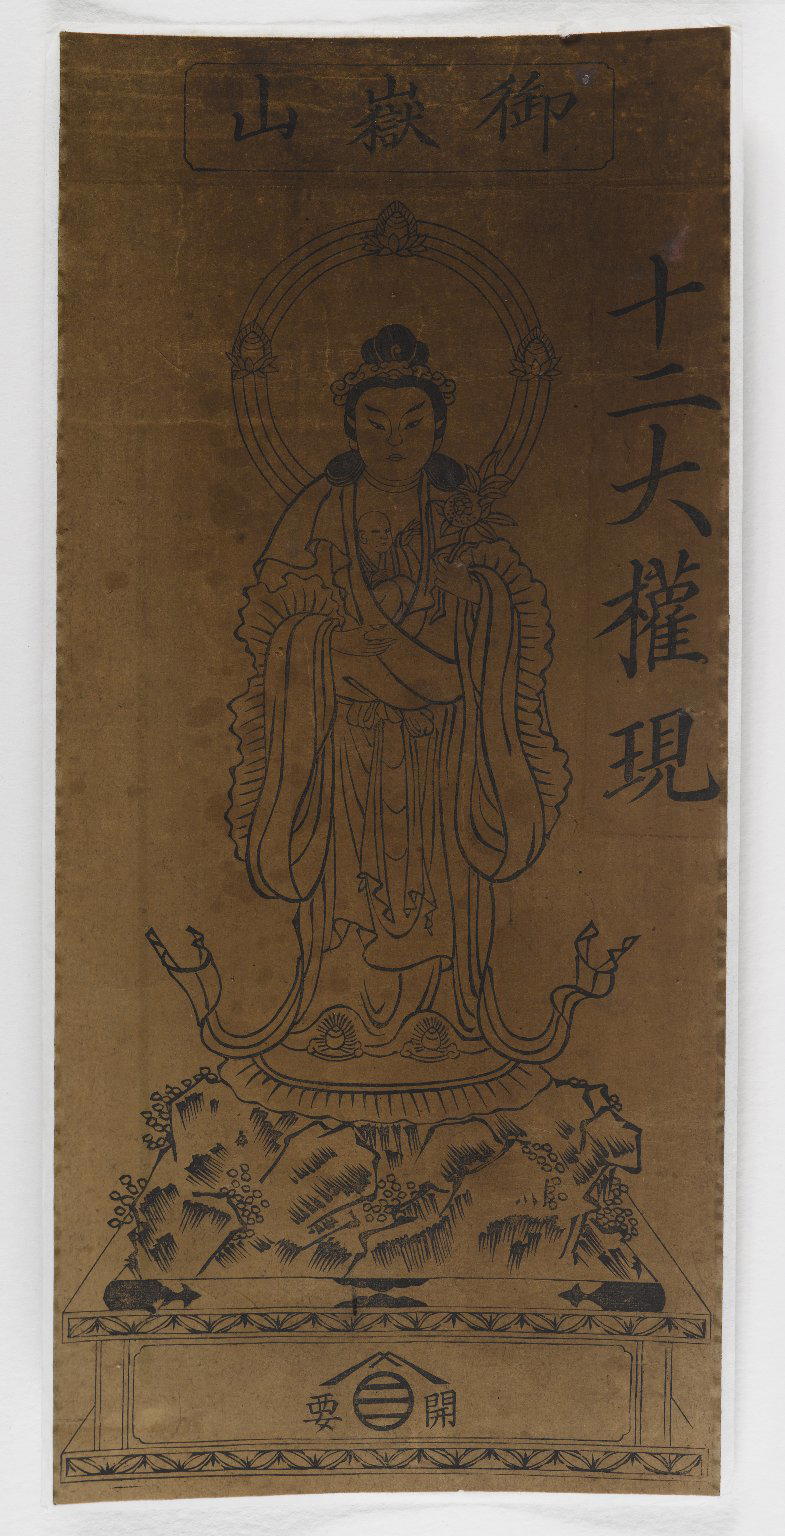 御嶽山
十二大權現
開要